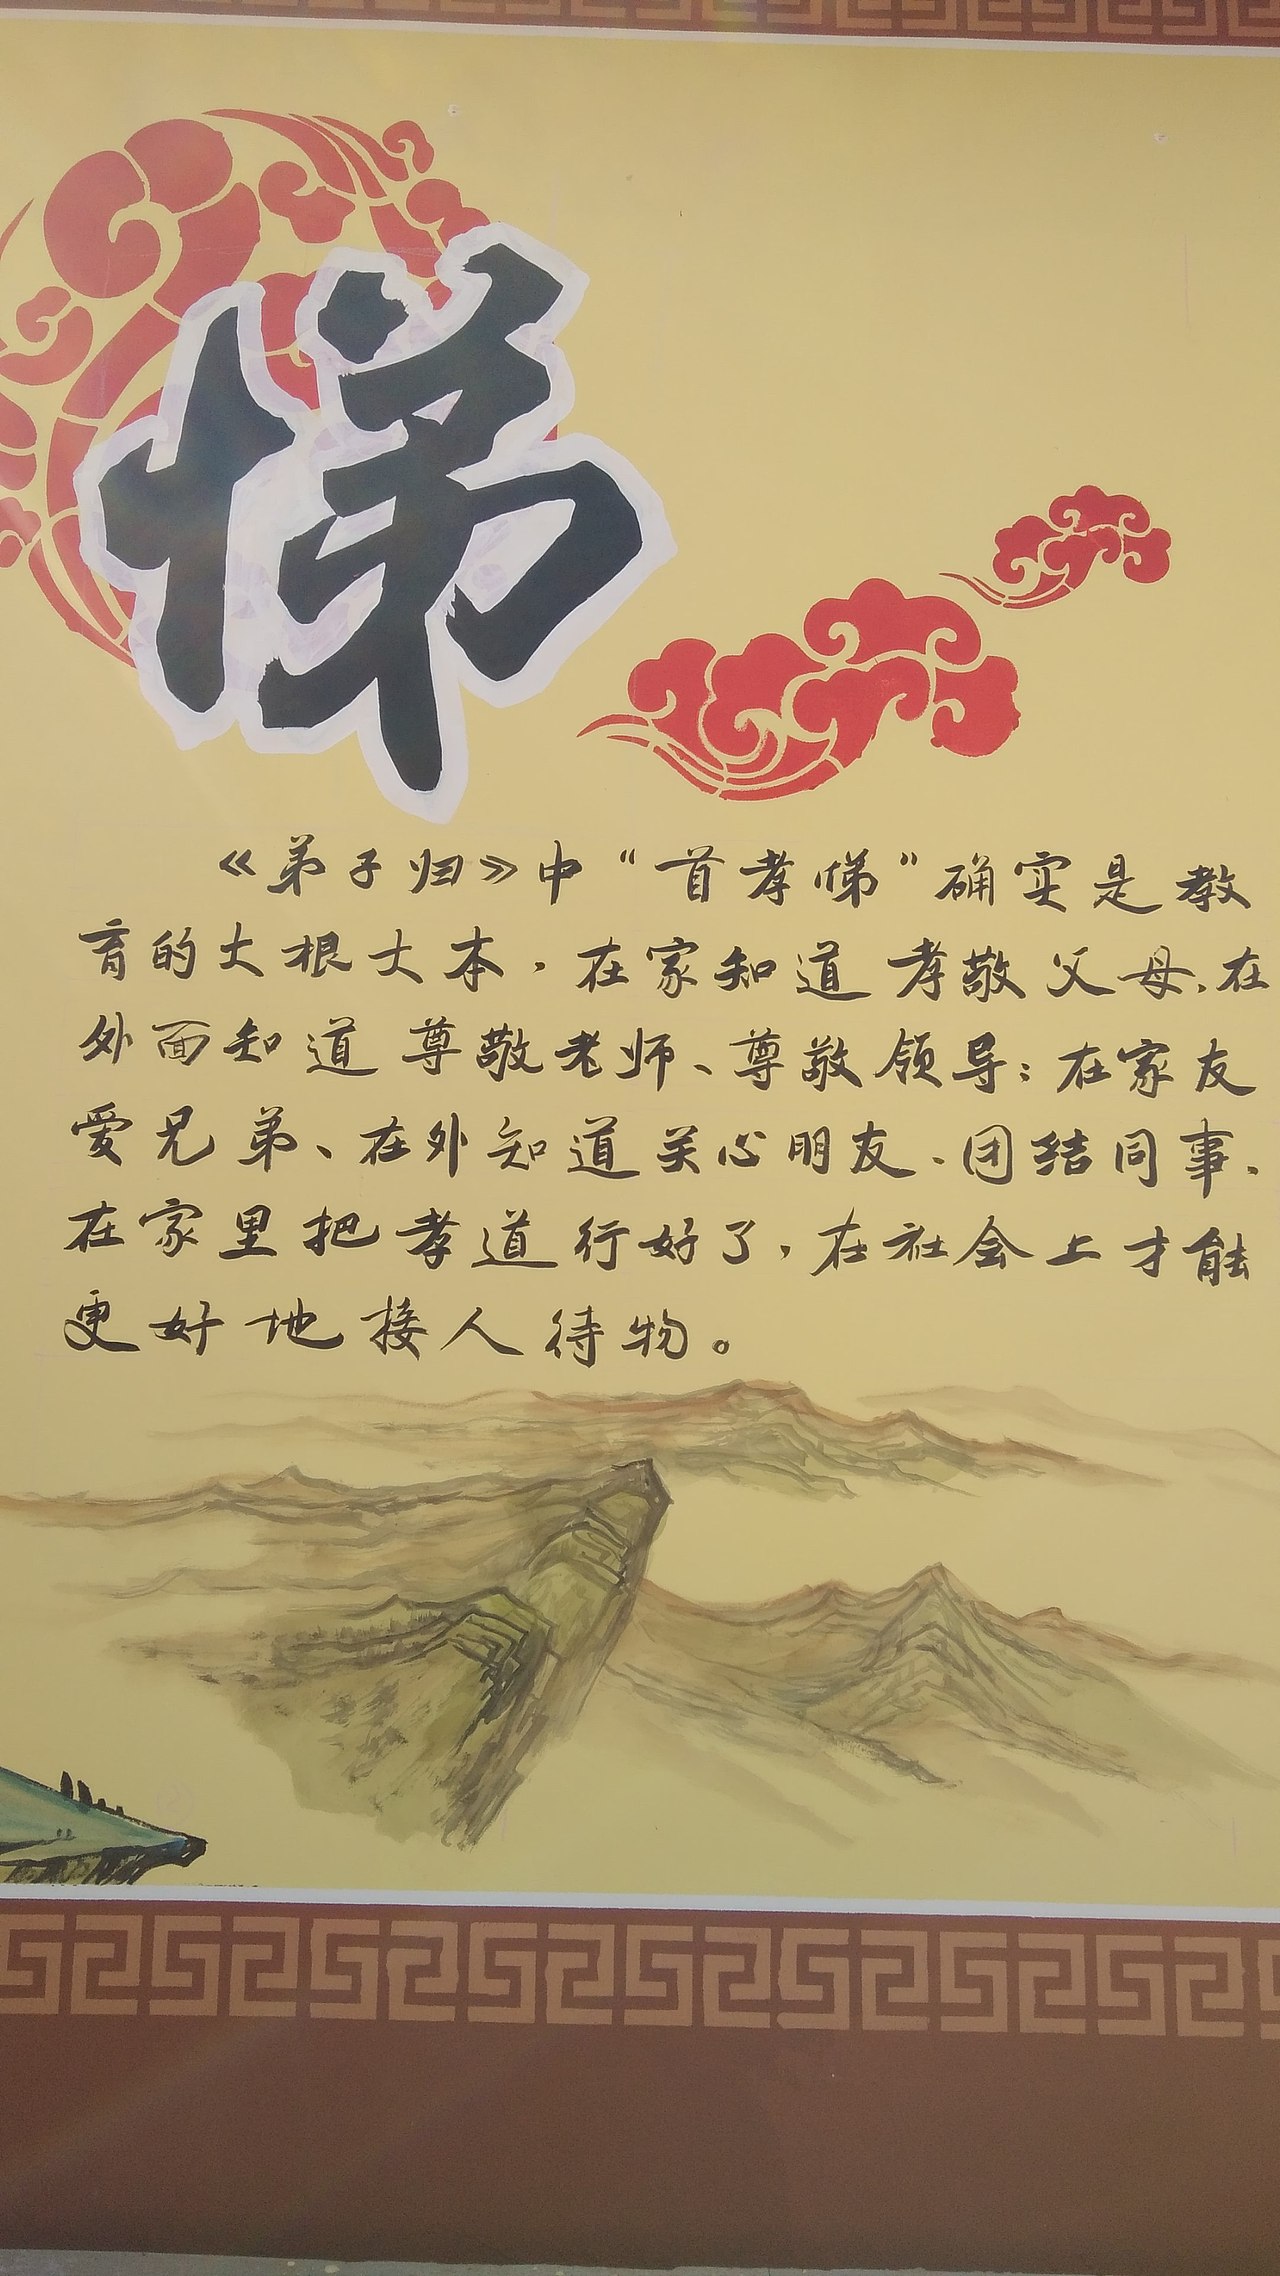 悌
《弟子归》中“首孝悌”确实是教
育的大根大本，在家知道孝敬父母、在
外面知道尊敬老师、尊敬领导；在家友
爱兄弟、在外知道关心朋友、团结同事、
在家里把孝道行好了，在社会上才能
更好地接人待物。